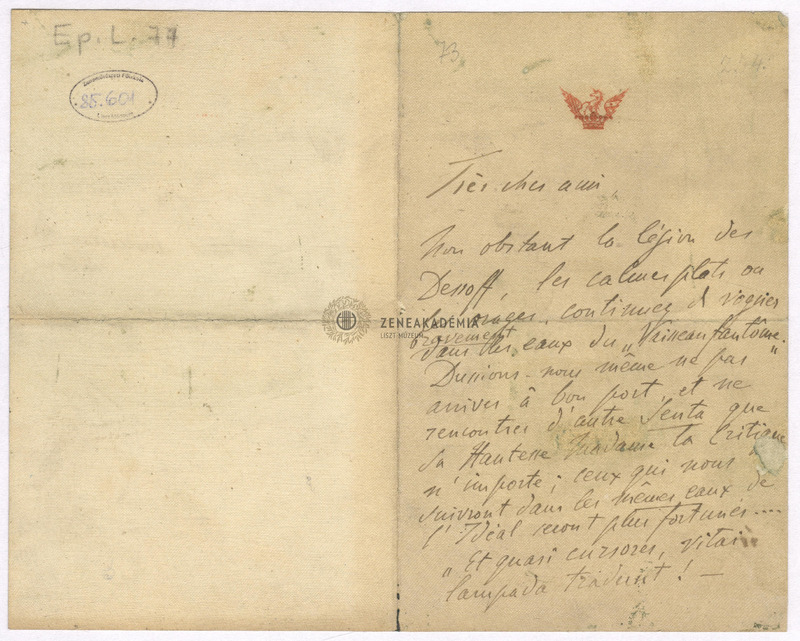 Ep. L. 77
85.601
73
Très cher ami,
Non obstant la légion des
Dessoff, les calmes plats ou
les orages, continuez de voguer
bravement
dans les eaux du „Vaisseau fantôme."
Dussions-nous même ne pas
arriver à bon port, et ne
rencontrer d'autre Senta que
Sa Hautesse Madame la Critique
n'importe; ceux qui nous
suivront dans les mêmes eaux de
l'Idéal seront plus fortunés....
„Et quasi cursores, vitai
lampada tradunt! —
ZENEAKADÉMIA
LISZT MÚZEUM